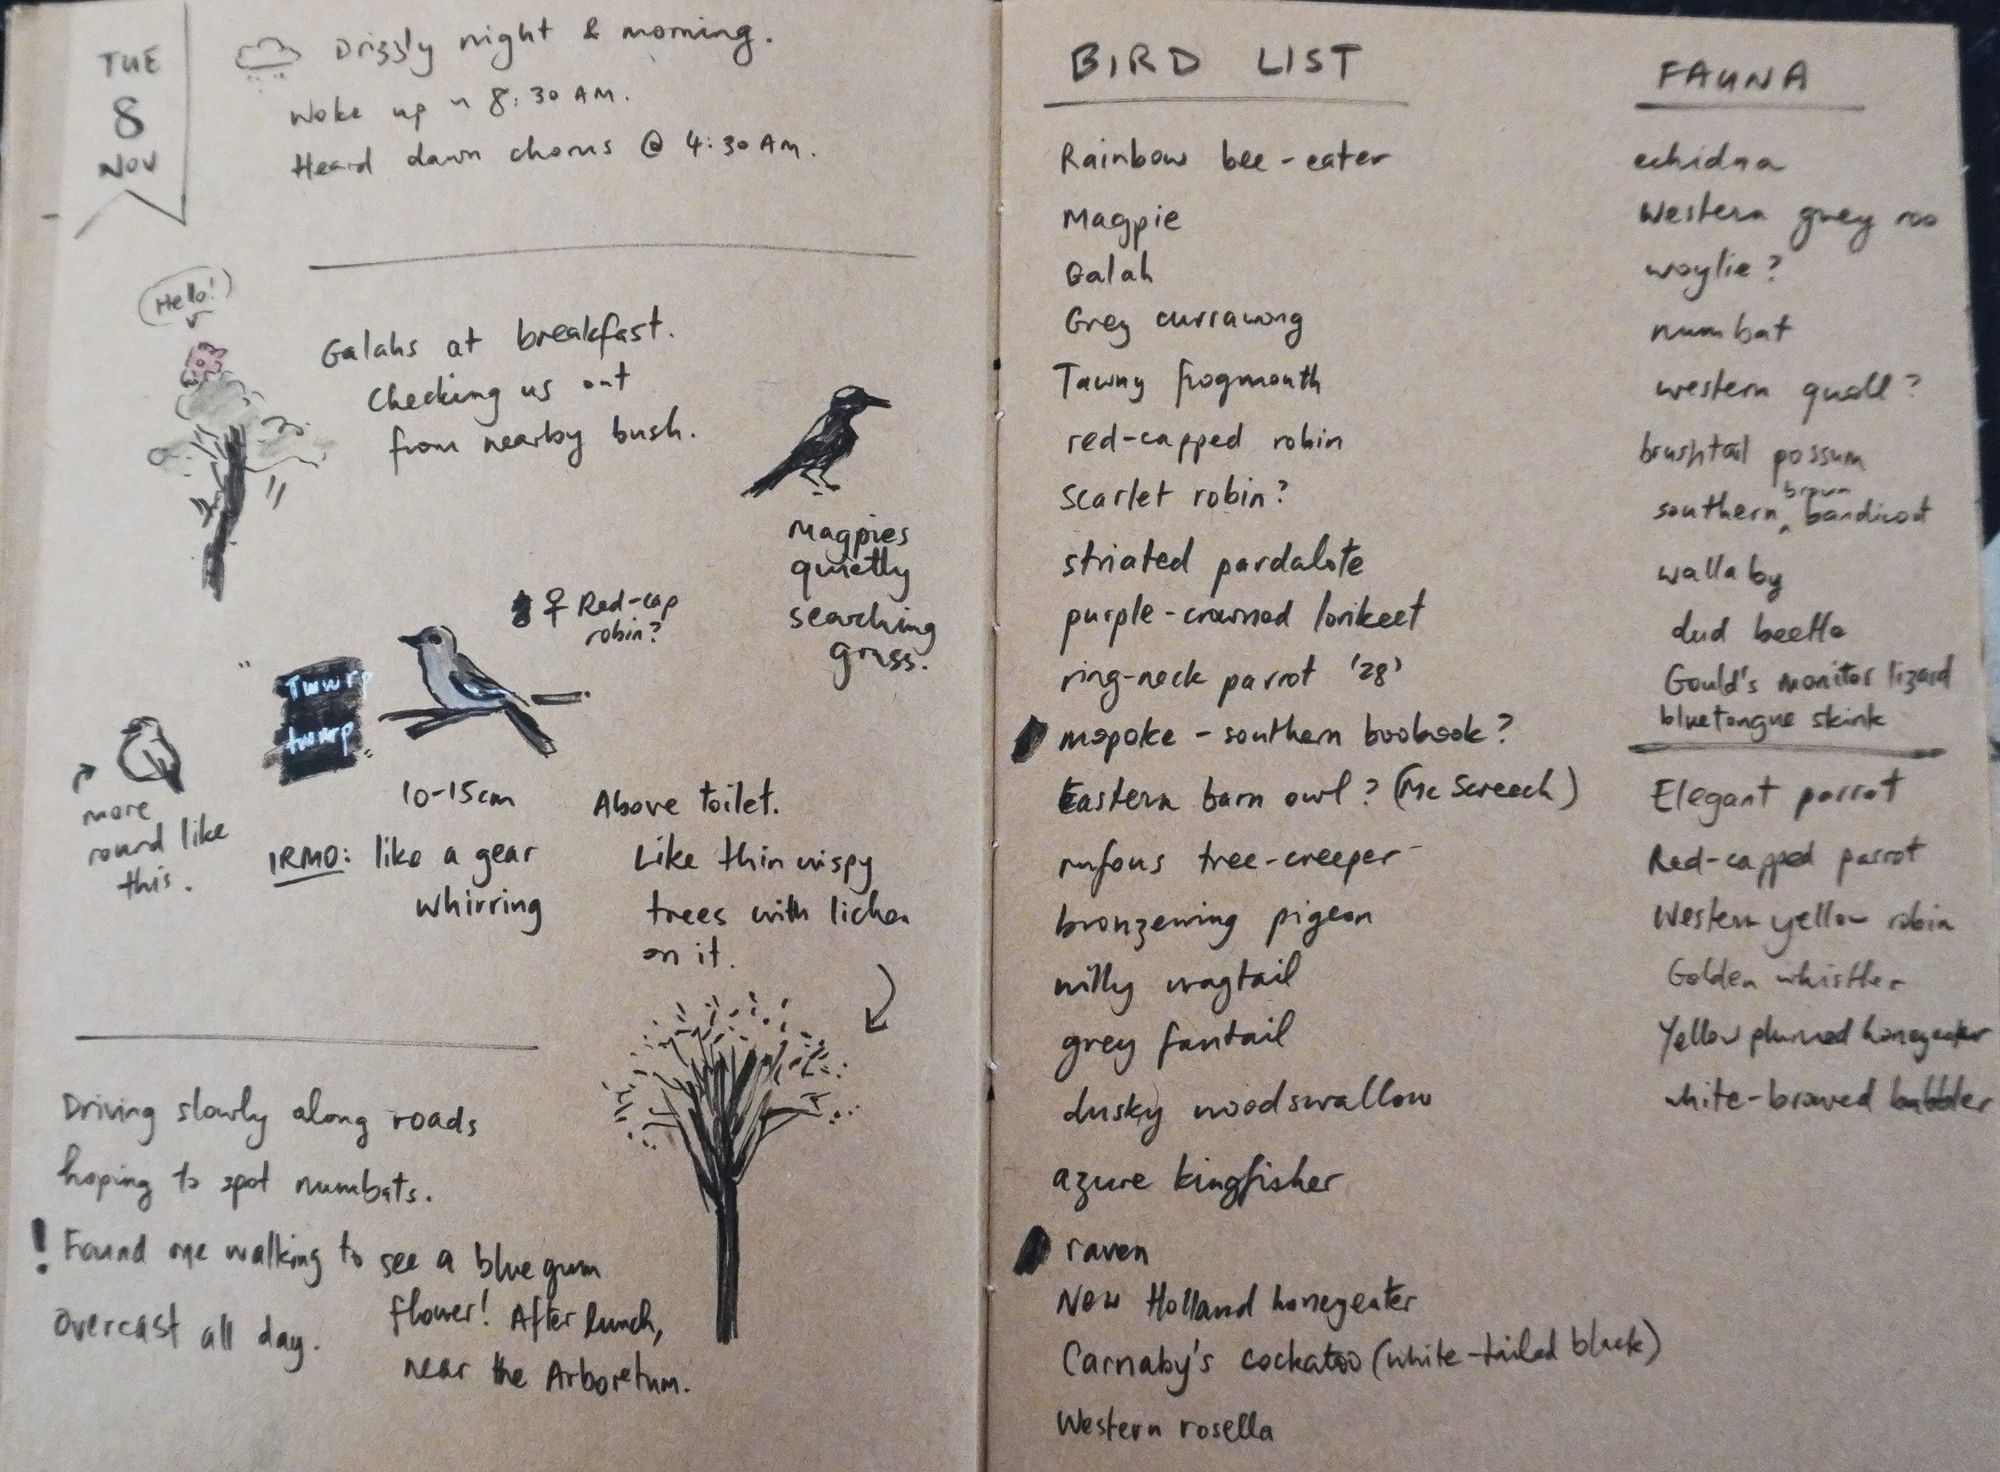 TUE
8
NOV
Drizzly night & morning.
Woke up ~ 8:30 AM.
Heard dawn chorus @ 4:30 AM.
Hello!
Galahs at breakfast.
Checking us out
from nearby bush.
Magpies
quietly
searching
grass.
♀ Red-cap
robin?
"Twwrp
twwrp"
more
round like
this.
10-15cm
IRMO: like a gear
whirring
Above toilet.
Like thin wispy
trees with lichen
on it.
Driving slowly along roads
hoping to spot numbats.
! Found one walking to see a blue gum
flower! After lunch,
near the Arboretum.
Overcast all day.
BIRD LIST
Rainbow bee-eater
Magpie
Galah
Grey currawong
Tawny frogmouth
red-capped robin
Scarlet robin?
striated pardalote
purple-crowned lorikeet
ring-neck parrot '28'
mopoke - southern boobook?
Eastern barn owl? (Mc Screech)
rufous tree-creeper
bronzewing pigeon
willy wagtail
grey fantail
dusky woodswallow
azure kingfisher
raven
New Holland honeyeater
Carnaby's cockatoo (white-tailed black)
Western rosella
FAUNA
echidna
Western grey roo
woylie?
numbat
western quoll?
brushtail possum
southern brown bandicoot
wallaby
dud beetle
Gould's monitor lizard
bluetongue skink
Elegant parrot
Red-capped parrot
Western yellow robin
Golden whistler
Yellow plumed honeyeater
white-browed babbler